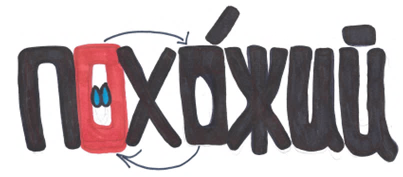 похо́жий